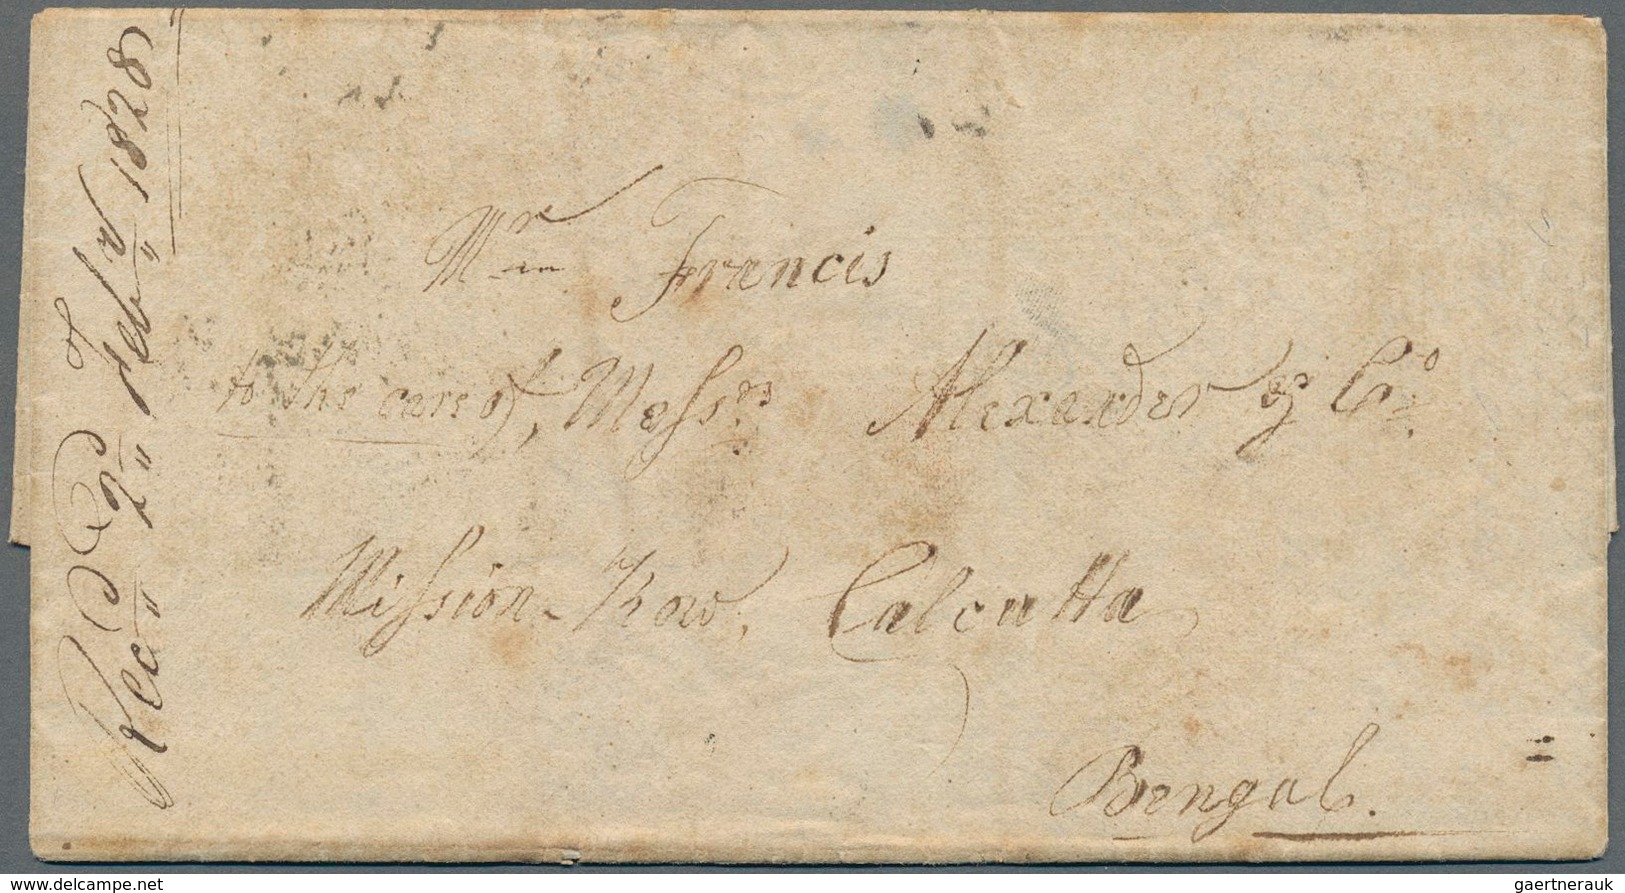 Mr Francis
to the care of, Messrs Alexander & Co.
Mission Row, Calcutta
Bengal.
Recd 2d Feby 1828
www.delcampe.net
gaertnerauk